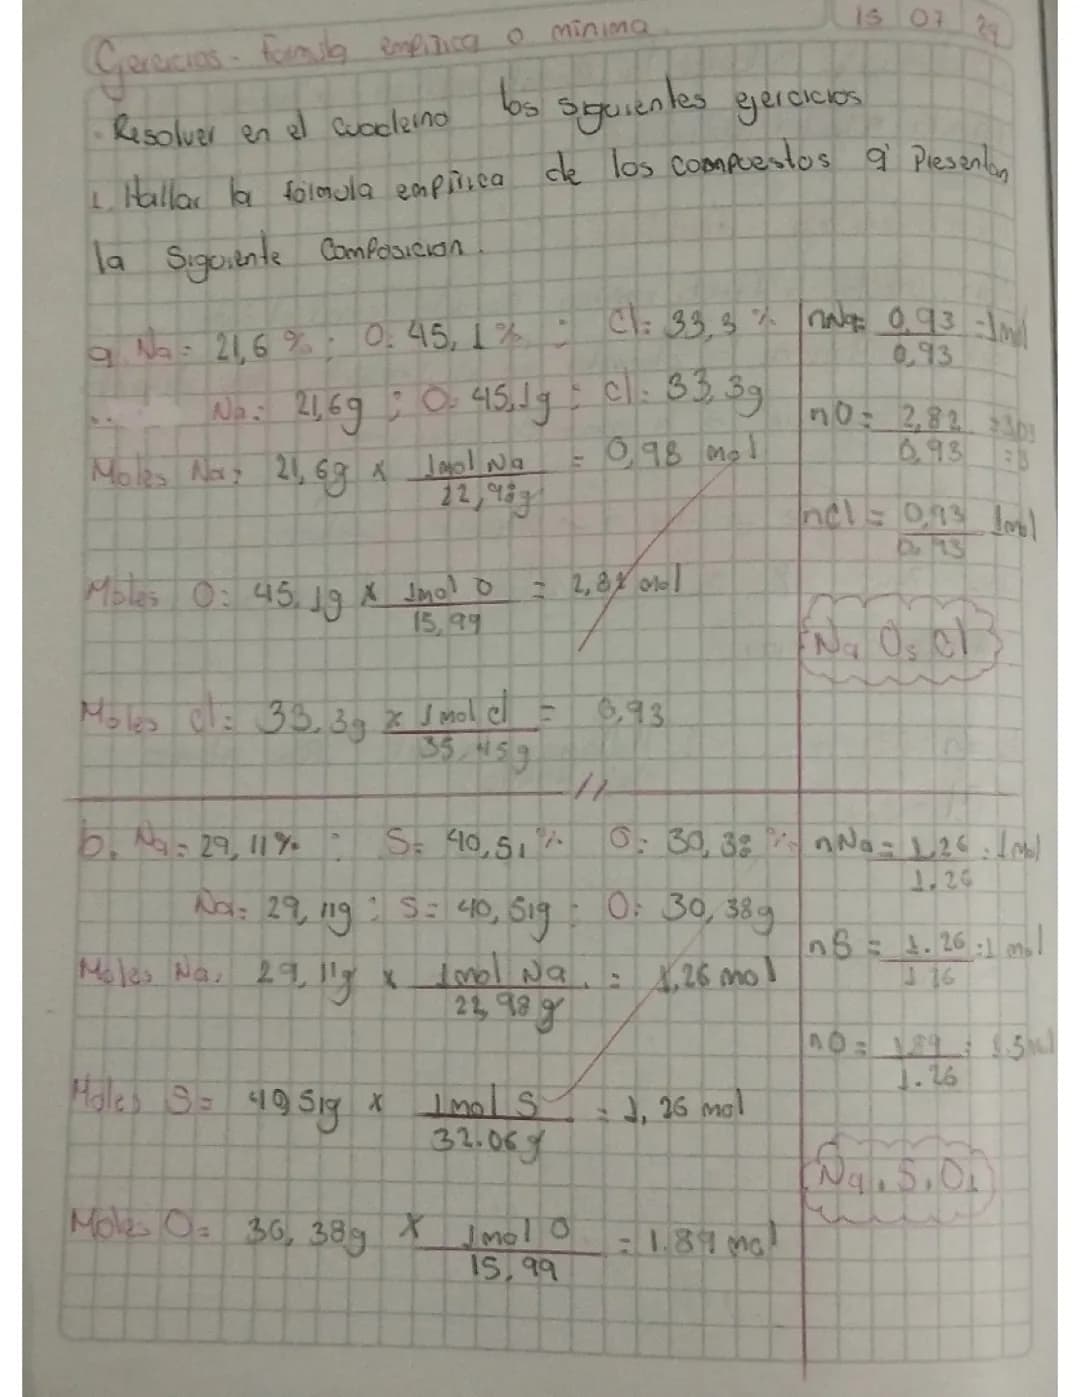 15 07 24
Ejercicios - Formula empirica o minima.
Resolver en el cuaderno los siguientes ejercicios
1. Hallar la fórmula empírica de los compuestos q' Presentan
la Siguiente Composicion.
a. Na = 21,6 % ; O: 45,1 % ; Cl: 33,3 %
Na: 21,6g ; O: 45,1g ; Cl: 33,3g
Moles Na: 21,6g x 1mol Na / 22,98g = 0,93 mol
Moles O: 45,1g x 1mol O / 15,99 = 2,82 mol
Moles Cl: 33,3g x 1mol Cl / 35,45g = 0,93
nNa = 0,93 / 0,93 = 1mol
nO = 2,82 / 0,93 = 3
nCl = 0,93 / 0,93 1mol
Na O3 Cl
b. Na = 29,11% ; S = 40,51 % O: 30,38 %
Na = 29,11g ; S = 40,51g ; O: 30,38g
Moles Na: 29,11g x 1mol Na / 22,98g = 1,26 mol
Moles S = 40,51g x 1mol S / 32.06g = 1,26 mol
Moles O = 30,38g x 1mol O / 15,99 = 1.89 mol
nNa = 1.26 / 1.26 : 1mol
nS = 1.26 / 1.26 : 1 mol
nO = 1.89 / 1.26 :
Na, S, O